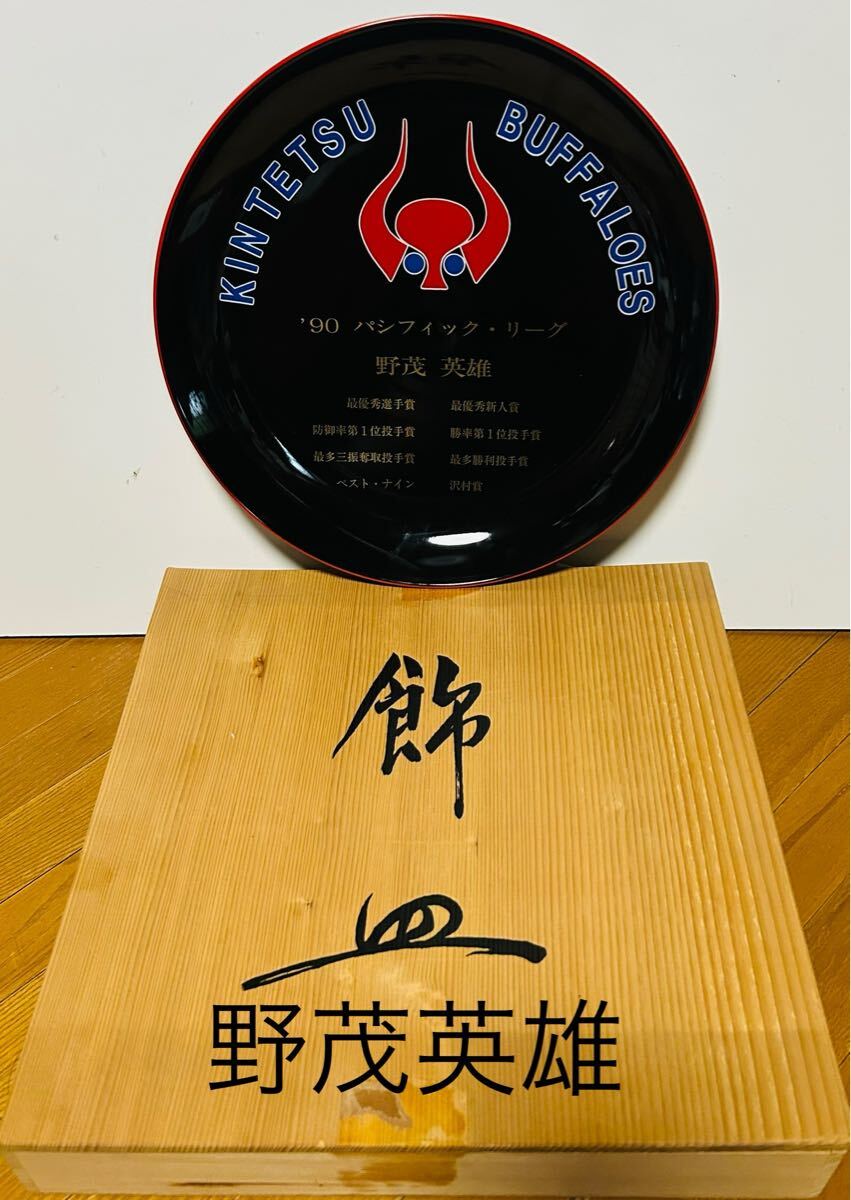 KINTETSU BUFFALOES
'90 パシフィック・リーグ
野茂 英雄
最優秀選手賞 最優秀新人賞
防御率第1位投手賞 勝率第1位投手賞
最多三振奪取投手賞 最多勝利投手賞
ベスト・ナイン 沢村賞
飾
皿
野茂英雄